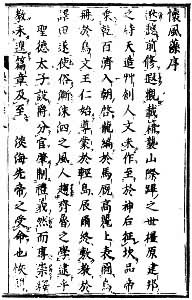 懷風藻序
逖聽前修遐觀載籍襲山降蹕之世橿原建邦
之時天造艸創人文未作至於神后征坎品帝
乘乾百濟入朝啓龍編於馬厩高麗上表圖烏
冊於鳥文王仁始導蒙於輕島辰爾終敷教於
譯田遂使俗漸洙泗之風人趨齊魯之學逮乎
聖德太子設爵分官肇制禮義然而專崇釋
教未遑篇章及至 淡海先帝之受命也恢